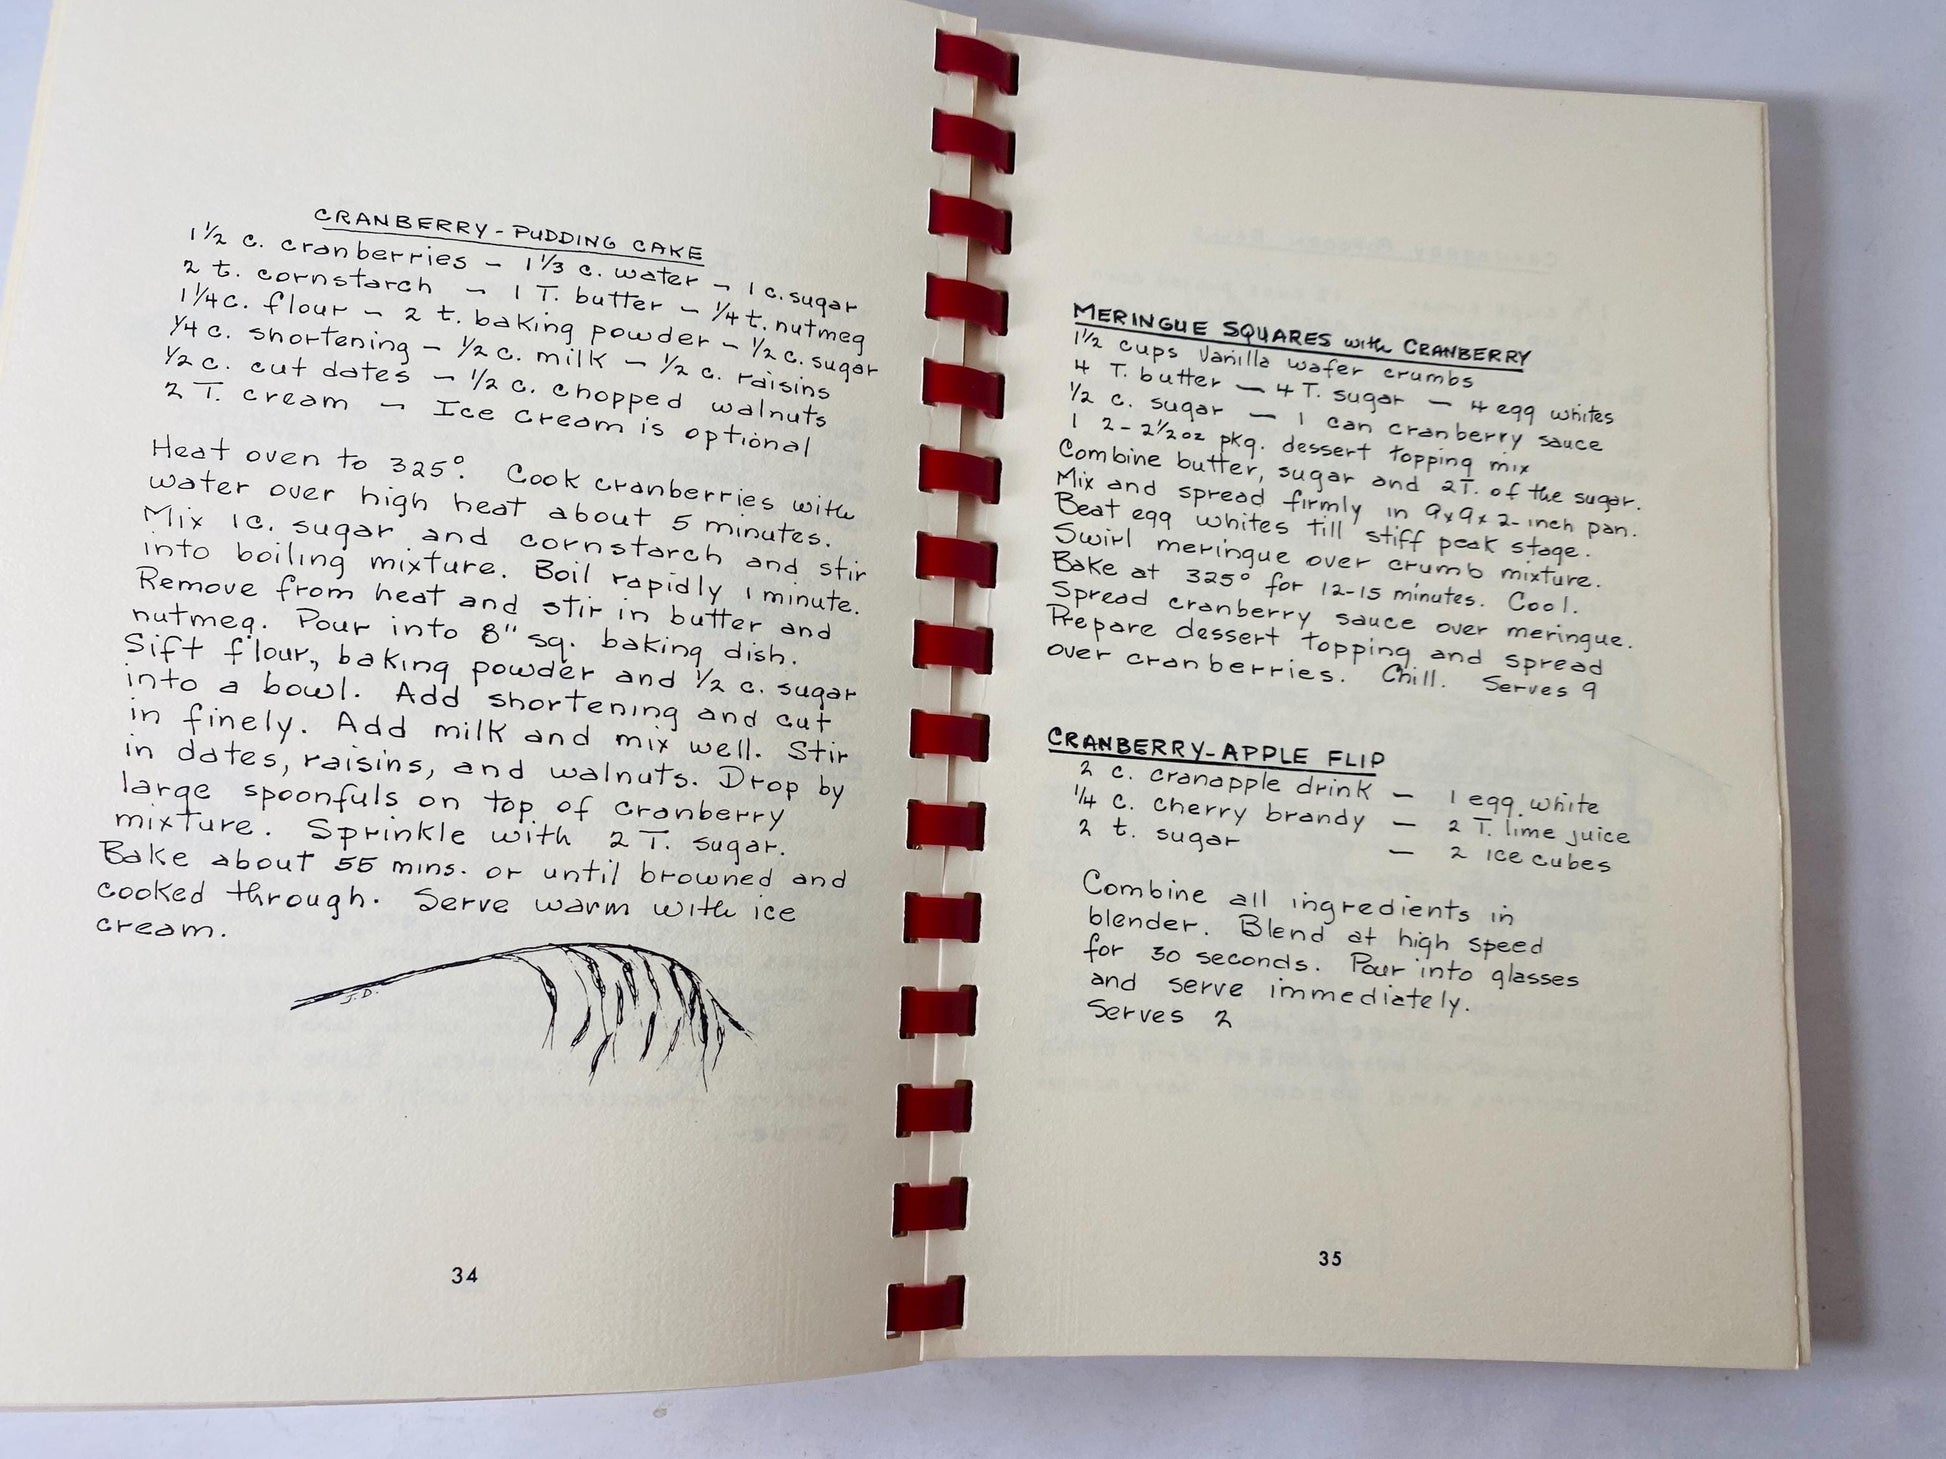 CRANBERRY-PUDDING CAKE
1½ c. cranberries – 1⅓ c. water – 1 c. sugar
2 t. cornstarch – 1 T. butter – ¼ t. nutmeg
1¼ c. flour – 2 t. baking powder – ½ c. sugar
¼ c. shortening – ½ c. milk – ½ c. raisins
½ c. cut dates – ½ c. chopped walnuts
2 T. cream – Ice cream is optional
Heat oven to 325°. Cook cranberries with
water over high heat about 5 minutes.
Mix 1c. sugar and cornstarch and stir
into boiling mixture. Boil rapidly 1 minute.
Remove from heat and stir in butter and
nutmeg. Pour into 8" sq. baking dish.
Sift flour, baking powder and ½ c. sugar
into a bowl. Add shortening and cut
in finely. Add milk and mix well. Stir
in dates, raisins, and walnuts. Drop by
large spoonfuls on top of cranberry
mixture. Sprinkle with 2 T. sugar.
Bake about 55 mins. or until browned and
cooked through. Serve warm with ice
cream.
J.D.
34
MERINGUE SQUARES with CRANBERRY
1½ cups vanilla wafer crumbs
4 T. butter – 4 T. sugar – 4 egg whites
½ c. sugar – 1 can cranberry sauce
1 2-2½ oz pkg. dessert topping mix
Combine butter, sugar and 2T. of the sugar.
Mix and spread firmly in 9x9x2-inch pan.
Beat egg whites till stiff peak stage.
Swirl meringue over crumb mixture.
Bake at 325° for 12-15 minutes. Cool.
Spread cranberry sauce over meringue.
Prepare dessert topping and spread
over cranberries. Chill. Serves 9
CRANBERRY-APPLE FLIP
2 c. cranapple drink – 1 egg white
¼ c. cherry brandy – 2 T. lime juice
2 t. sugar – 2 ice cubes
Combine all ingredients in
blender. Blend at high speed
for 30 seconds. Pour into glasses
and serve immediately.
Serves 2
35